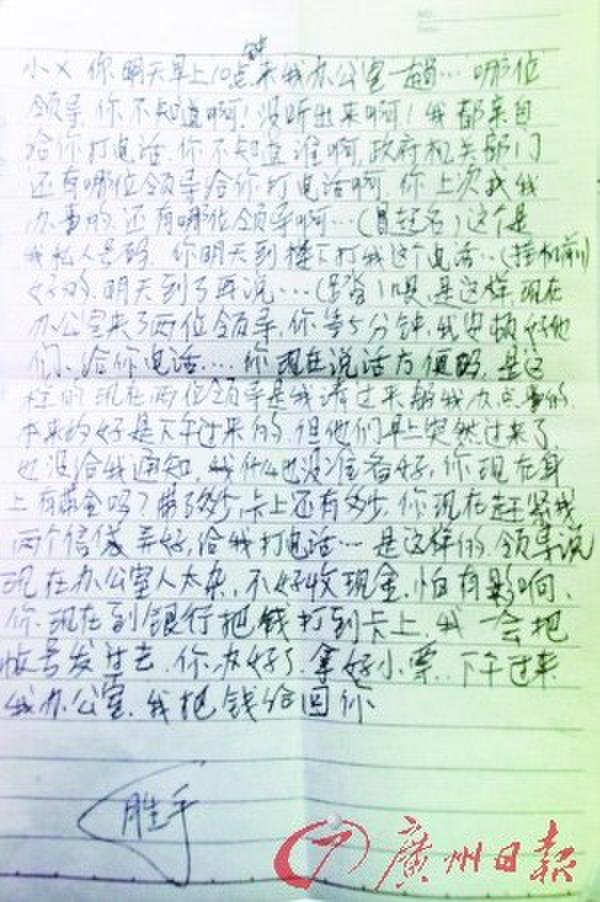 NO.
钟
小X 你明天早上10点来我办公室一趟…哪位
领导,你不知道啊!没听出来啊!我都亲自
给你打电话.你不知道谁啊,政府机关部门
还有哪位领导给你打电话啊.你上次找我
办事的.还有哪位领导啊…(冒起名)这个是
我私人号码.你明天到楼下打我这个电话…(挂机前)
好的.明天到了再说……(踏)喂.是这样,现在
办公室来了两位领导.你等5分钟,我安顿好他
们.给你电话……你现在说话方便吗.是这
样的现在两位领导是我请过来帮我办点事的.
本来约好是下午过来的.但他们早上突然过来了
也没给我通知.我什么也没准备好,你现在身
上有现金吗?带了多少,卡上还有多少.你现在赶紧找
两个信袋弄好,给我打电话…是这样的.领导说
现在办公室人太杂,不好收现金,怕有影响、
你现在到银行把钱打到卡上,我一会把
帐号发过去.你办好了.拿好小票.下午过来
我办公室.我把钱给回你.
胜手
廣州日報